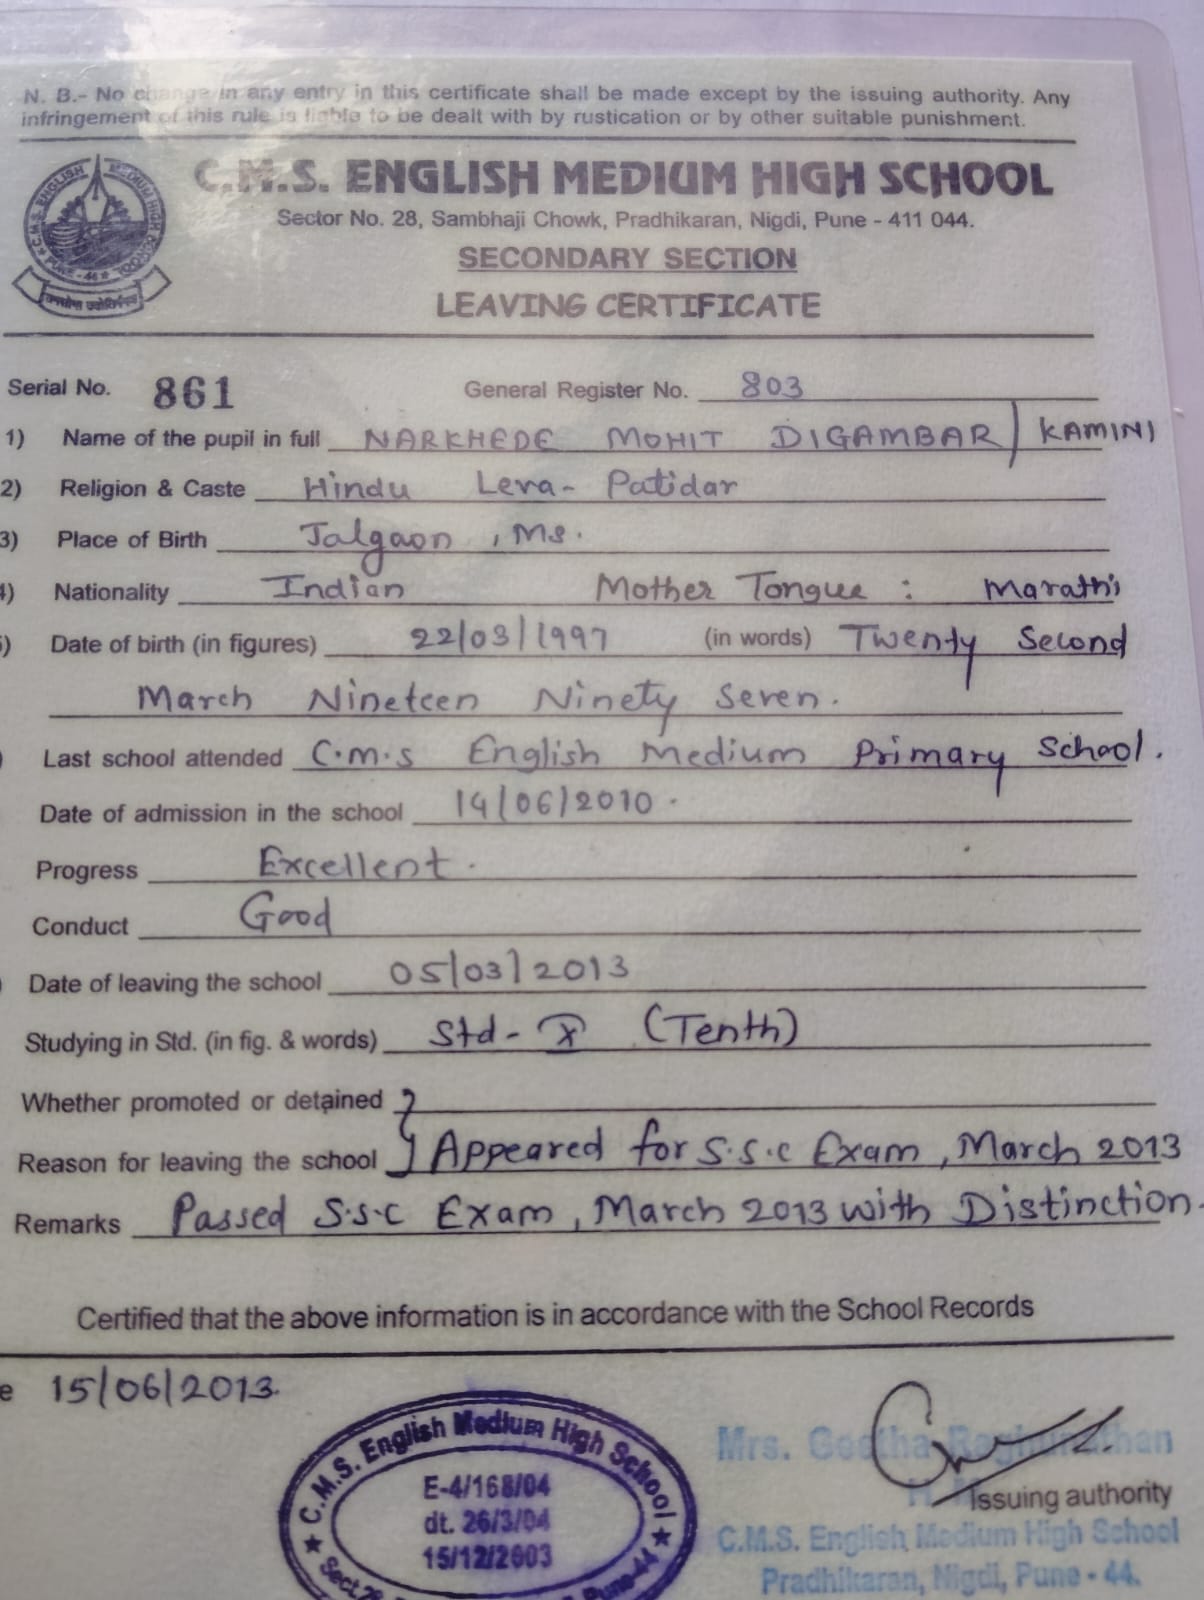 N. B.- No change in any entry in this certificate shall be made except by the issuing authority. Any
infringement of this rule is liable to be dealt with by rustication or by other suitable punishment.
C.M.S. ENGLISH MEDIUM HIGH SCHOOL
Sector No. 28, Sambhaji Chowk, Pradhikaran, Nigdi, Pune - 411 044.
SECONDARY SECTION
LEAVING CERTIFICATE
C.M.S. ENGLISH MEDIUM HIGH SCHOOL
PUNE - 44
Serial No. 861 General Register No. 803
1) Name of the pupil in full NARKHEDE MOHIT DIGAMBAR / KAMINI
2) Religion & Caste Hindu Leva- Patidar
3) Place of Birth Jalgaon, Ms.
4) Nationality Indian Mother Tongue : Marathi
) Date of birth (in figures) 22/03/1997 (in words) Twenty Second
March Nineteen Ninety Seven.
) Last school attended C.m.s English Medium Primary School.
Date of admission in the school 14/06/2010.
Progress Excellent.
Conduct Good
) Date of leaving the school 05/03/2013
Studying in Std. (in fig. & words) Std- X (Tenth)
Whether promoted or detained
Reason for leaving the school } Appeared for S.S.C Exam, March 2013
Remarks Passed S.S.C Exam, March 2013 with Distinction.
Certified that the above information is in accordance with the School Records
e 15/06/2013.
C.M.S. English Medium High School
E-4/168/04
dt. 26/3/04
15/12/2003
Sect.28 Pune-44
Mrs. Geetha Raghunathan
Issuing authority
C.M.S. English Medium High School
Pradhikaran, Nigdi, Pune - 44.